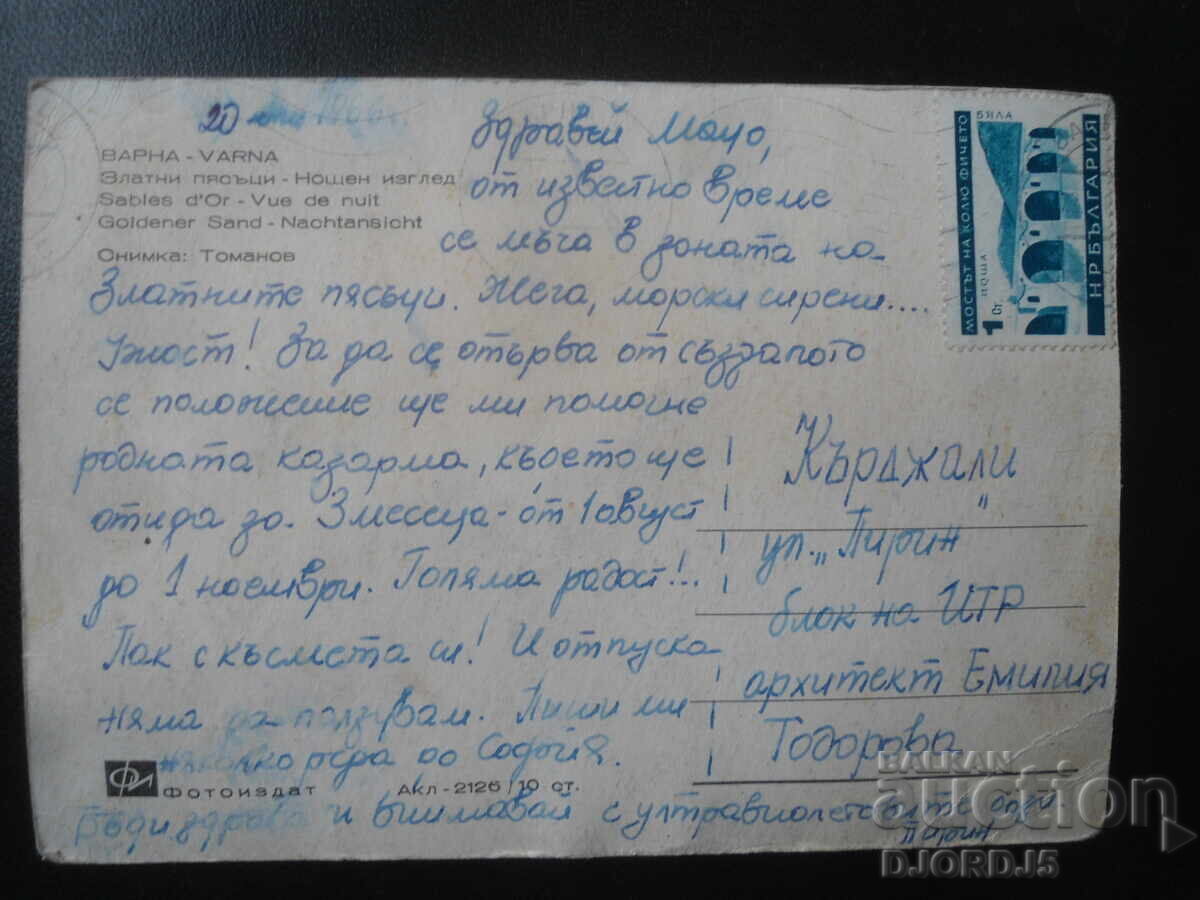 20
ВАРНА - VARNA
Златни пясъци - Нощен изглед
Sables d'Or - Vue de nuit
Goldener Sand - Nachtansicht
Снимка: Томанов
Здравей Мацо,
от известно време
се мъча в зоната на
Златните пясъци. Жега, морски сирени....
Ужост! За да се отърва от създалото
се положение ще ми помогне
родната казарма, където ще
отида за 3 месеца - от 1 август
до 1 ноември. Голяма радост!..
Пак с късмета си! И отпуска
няма да ползувам. Пиши ми
няколко реда до София.
Бъди здрава и внимавай с ултравиолетовите лъчи.
Пирин
Кърджали
ул. „Пирин"
блок на ИТР
архитект Емилия
Тодорова
ФОТОИЗДАТ
Акл - 2126 / 10 ст.
БЯЛА
МОСТЪТ НА КОЛЮ ФИЧЕТО
ПОЩА
1 Ст
НР БЪЛГАРИЯ
BALKAN
auction
DJORDJ5